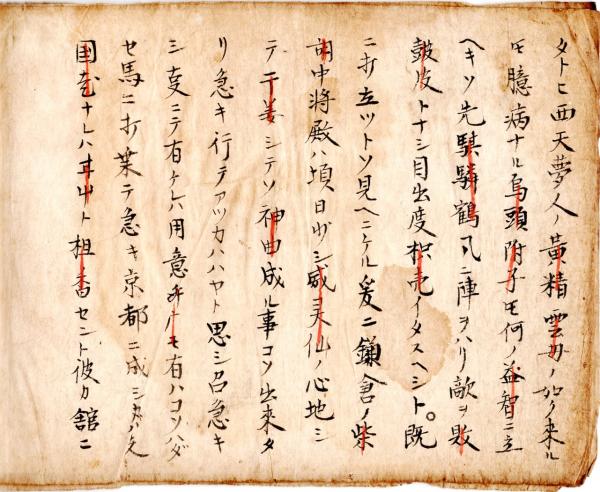 タトヒ西天夢人ノ黄精雲母ノ如ク来ル
モ臆病ナル烏頭附子モ何ノ益智ニ立
ヘキソ先騏驎鶴凡ニ陣ヲハリ敵ヲ敗
鼓皮トナシ目出度枳売イタスヘシト。既
ニ打立ツトソ見ヘニケル爰ニ鎌倉ノ柴
胡中將殿ハ頃日少シ威灵仙ノ心地シ
テ干姜シテソ神曲成ル事コソ出来タ
リ急キ行テアツカハハヤト思シ召急キ
シ支ニテ有ケレハ用意モ有ハコソハダ
セ馬ニ打葉テ急キ京都ニ成シ
国老ナレハ ト相香セント彼カ舘ニ